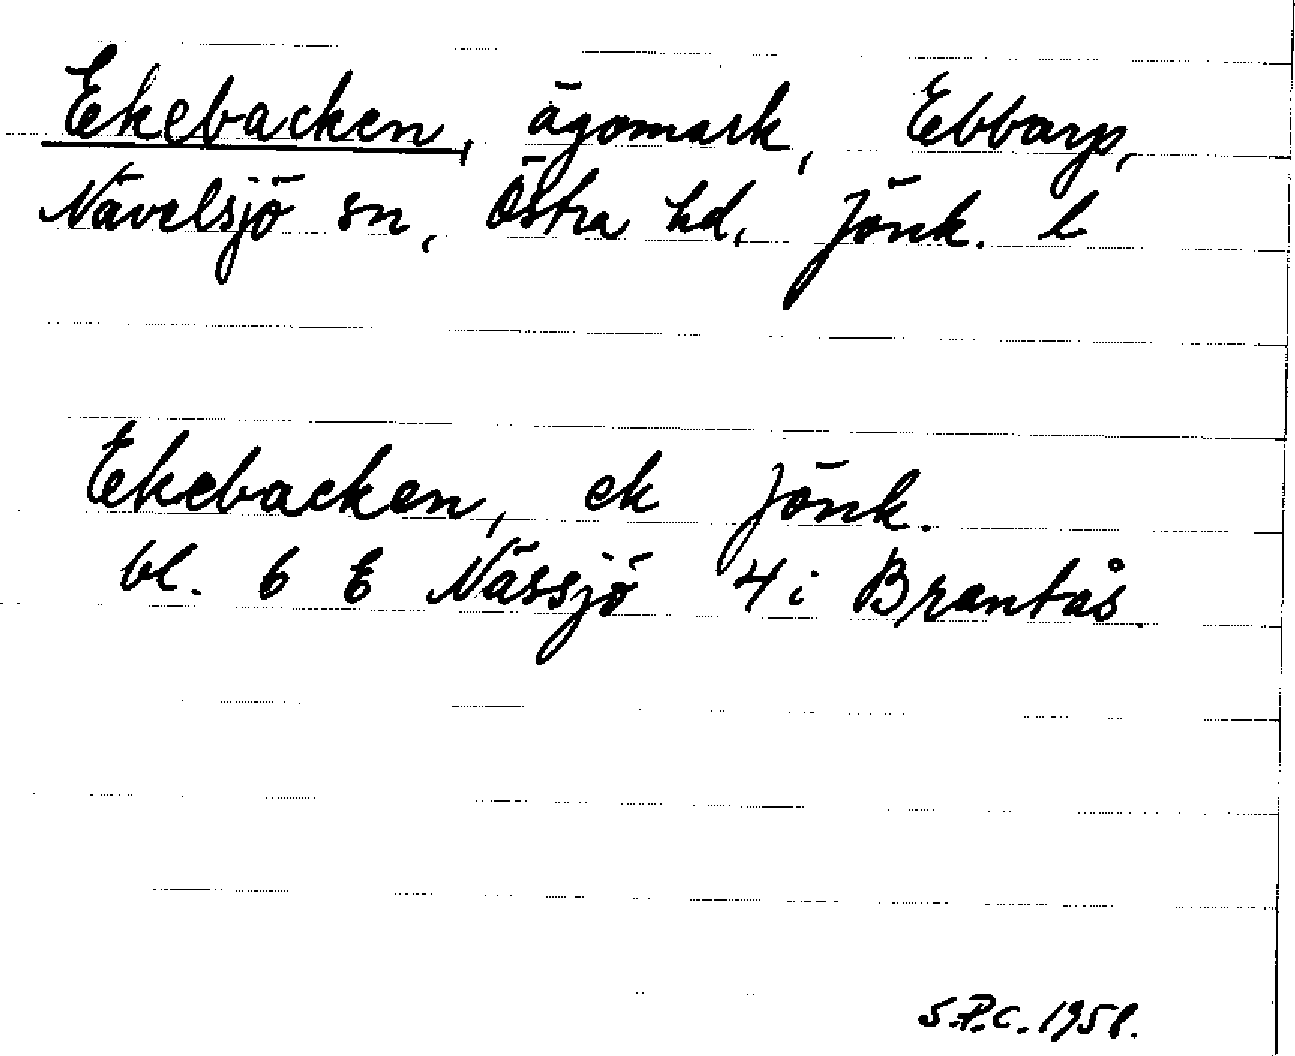 Ekebacken, ägomark, Ebbarp,
Nävelsjö sn, Östra hd, Jönk. l
Ekebacken, ek Jönk.
bl. 6 E Nässjö 4 i Brantås.
S.P.C. 1958.